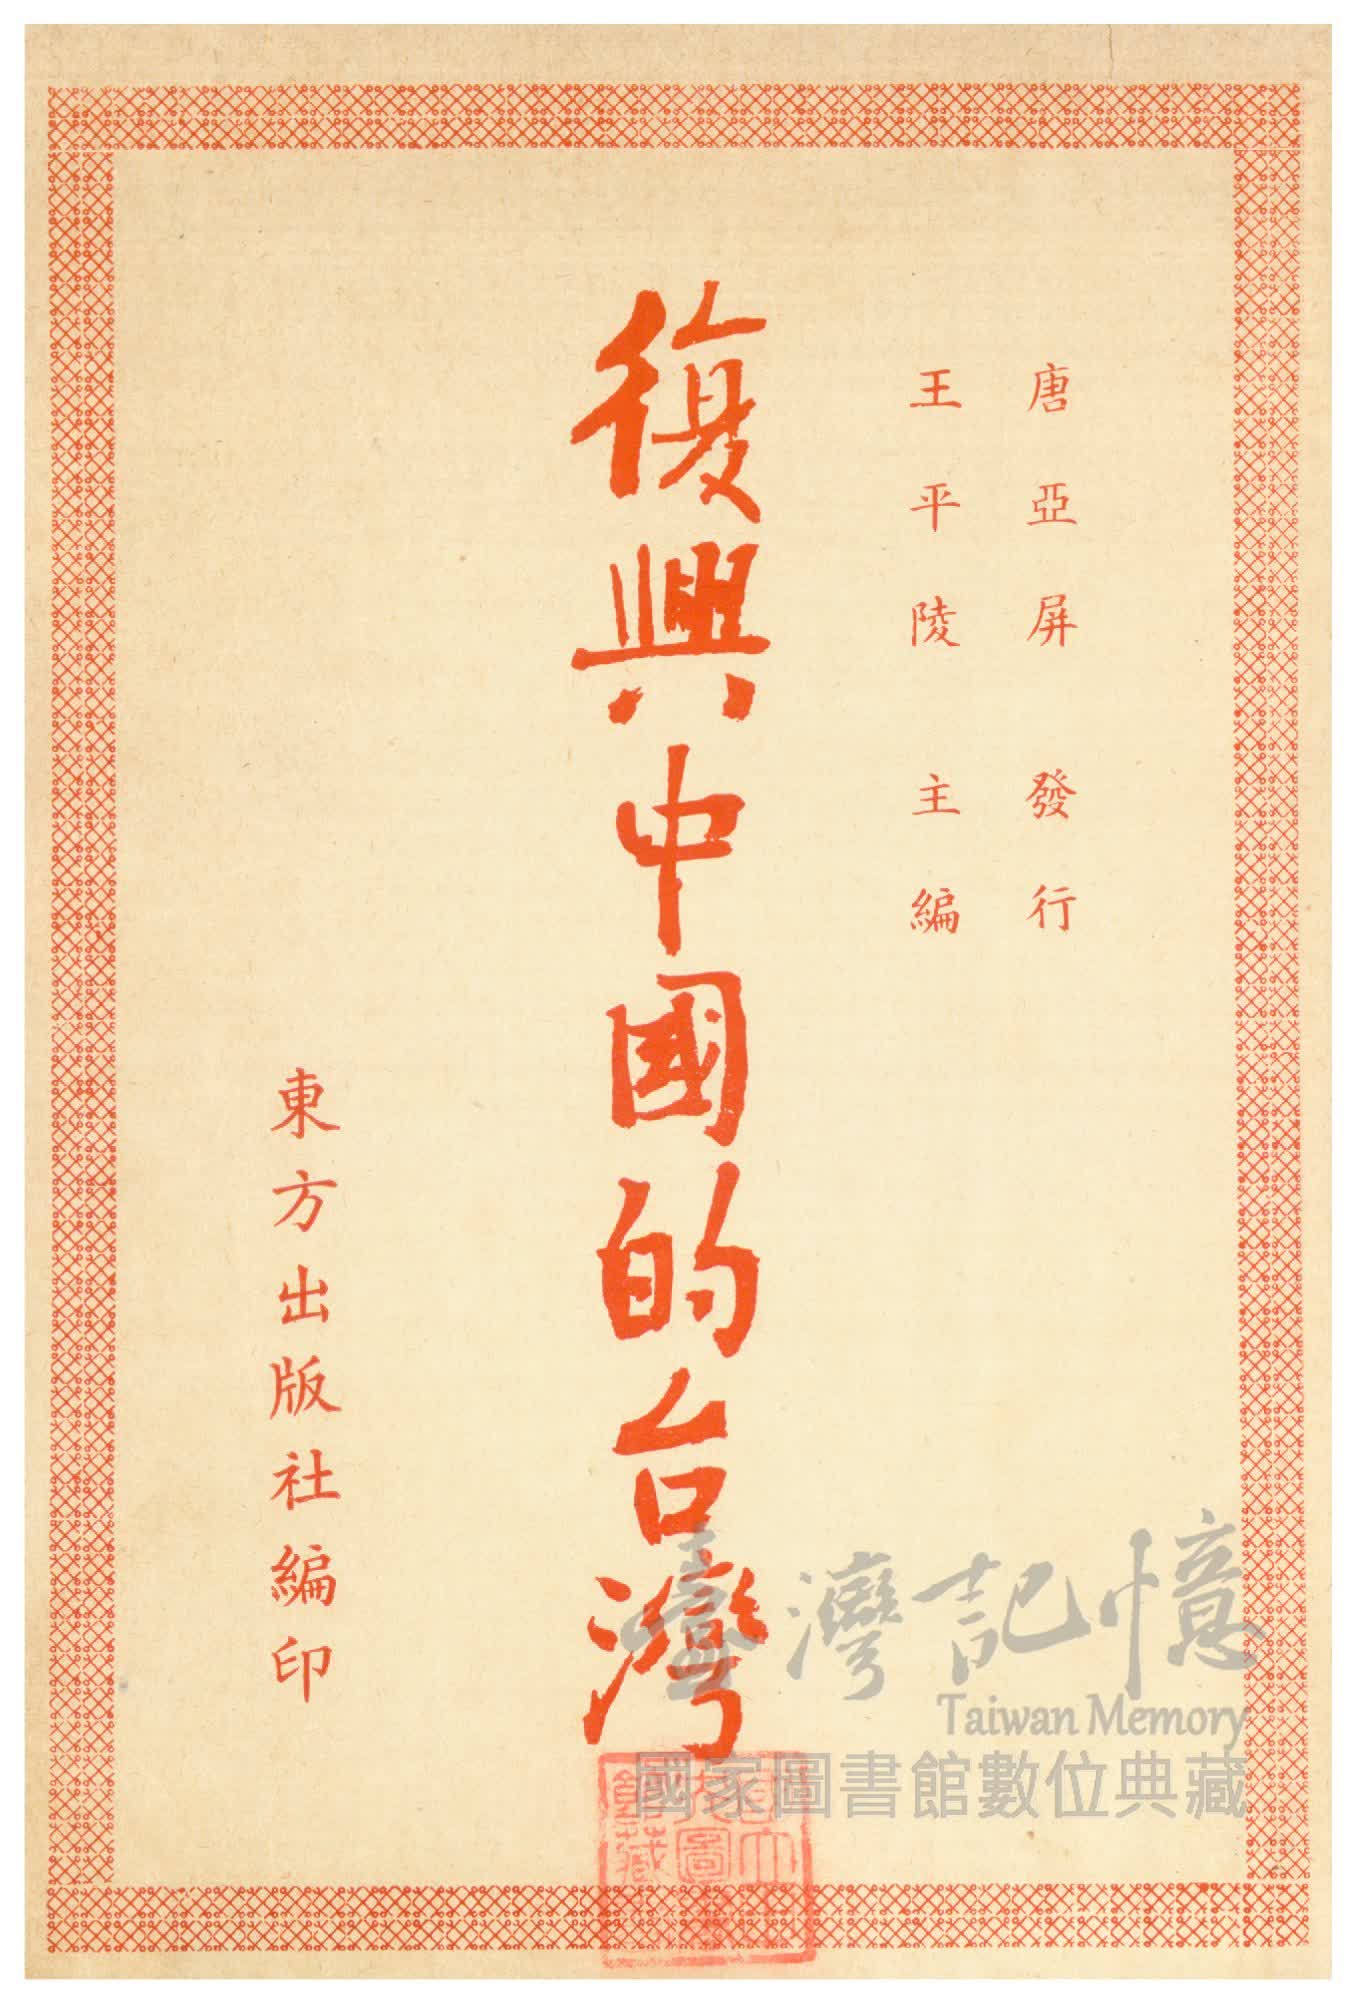 唐亞屏 發行
王平陵 主編
復興中國的台灣
東方出版社編印
臺灣記憶
Taiwan Memory
國家圖書館數位典藏